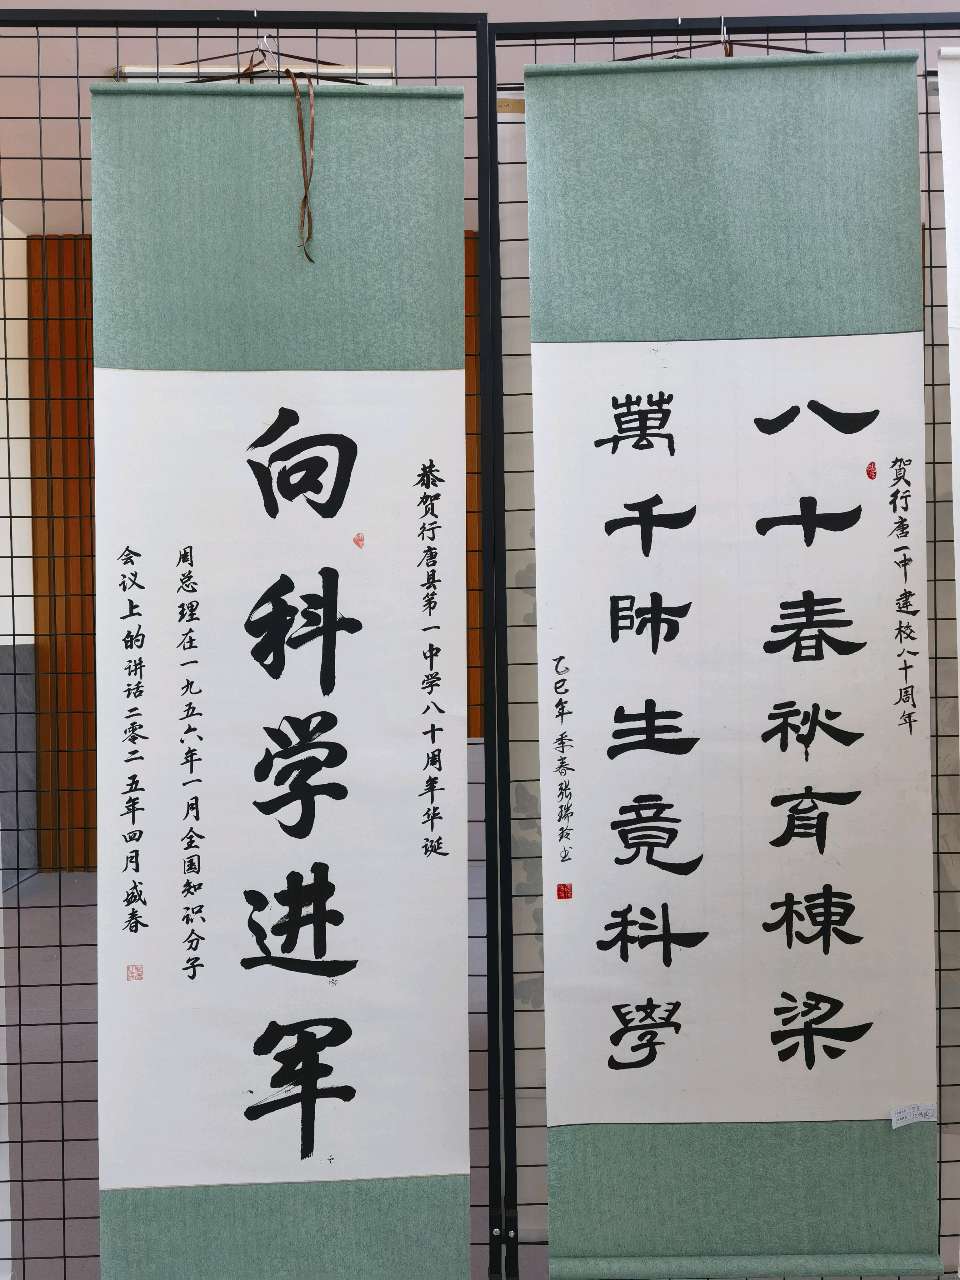 恭贺行唐县第一中学八十周年华诞
向科学进军
周总理在一九五六年一月全国知识分子
会议上的讲话二零二五年四月盛春
贺行唐一中建校八十周年
八十春秋育棟梁
萬千師生竟科學
乙巳年季春张瑞玲书